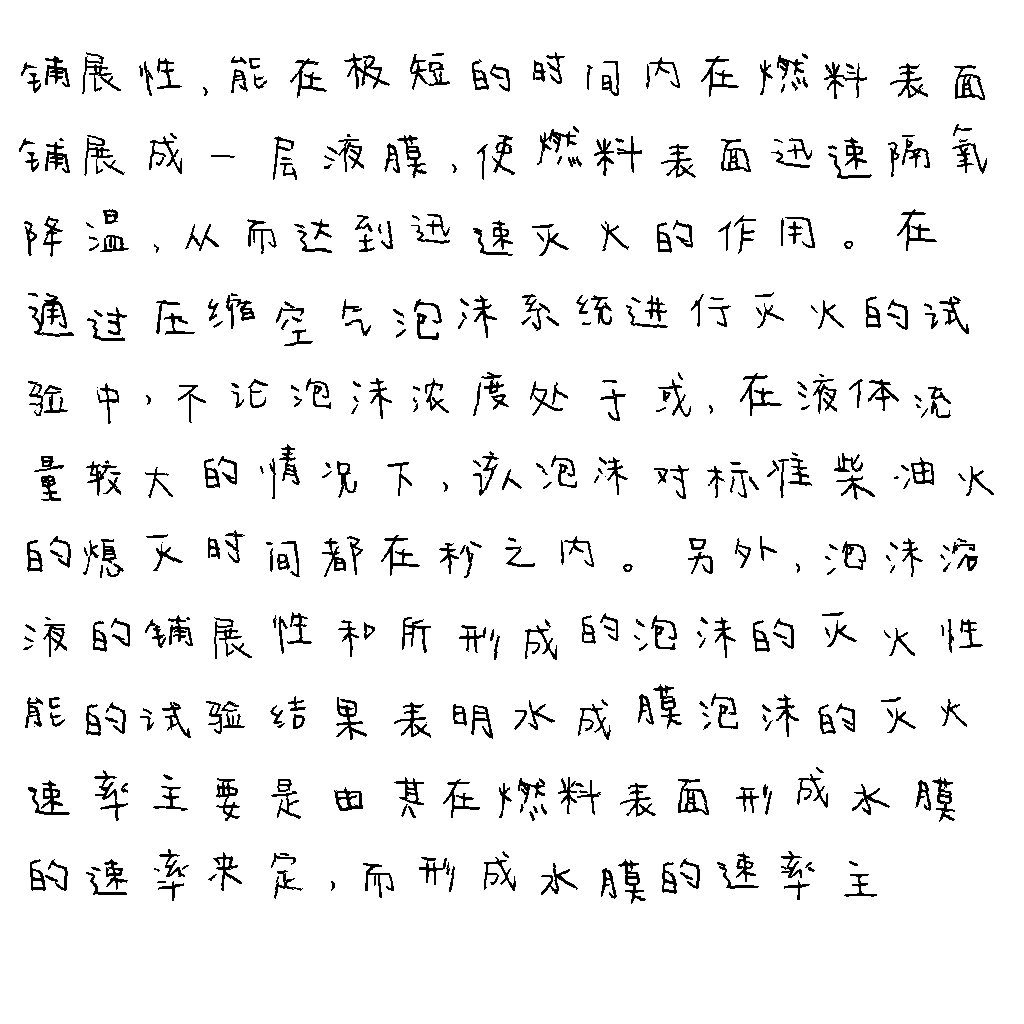 铺展性,能在极短的时间内在燃料表面
铺展成一层液膜,使燃料表面迅速隔氧
降温,从而达到迅速灭火的作用。在
通过压缩空气泡沫系统进行灭火的试
验中,不论泡沫浓度处于或,在液体流
量较大的情况下,该泡沫对标准柴油火
的熄灭时间都在秒之内。另外,泡沫溶
液的铺展性和所形成的泡沫的灭火性
能的试验结果表明水成膜泡沫的灭火
速率主要是由其在燃料表面形成水膜
的速率来定,而形成水膜的速率主